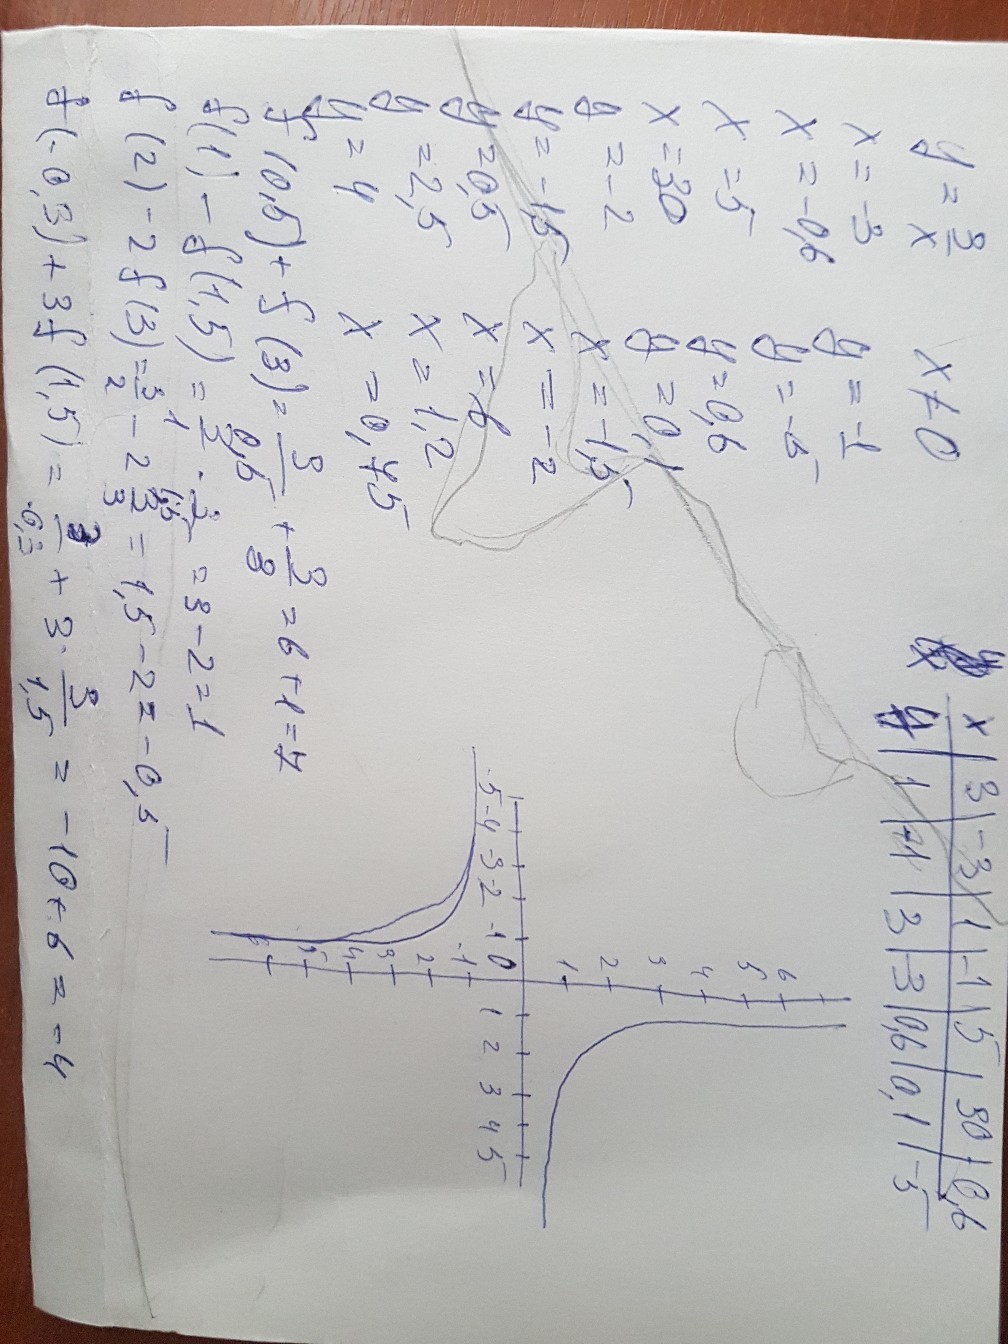 y = 3/x x ≠ 0
x = -3 y = -1
x = -0,6 y = -5
x = 5 y = 0,6
x = 30 y = 0,1
y = -2 x = -1,5
y = -1,5 x = -2
y = 0,5 x = 6
y = 2,5 x = 1,2
y = 4 x = 0,75
f(0,5) + f(3) = 3/0,5 + 3/3 = 6 + 1 = 7
f(1) - f(1,5) = 3/1 - 3/1,5 = 3 - 2 = 1
f(2) - 2f(3) = 3/2 - 2 3/3 = 1,5 - 2 = -0,5
f(-0,3) + 3f(1,5) = 3/-0,3 + 3 · 3/1,5 = -10 + 6 = -4
x | 3 | -3 | 1 | -1 | 5 | 30 | -0,6
y | 1 | -1 | 3 | -3 | 0,6 | 0,1 | -5
6
5
4
3
2
1
-5 -4 -3 -2 -1 0 1 2 3 4 5
-1
2
3
4
5
6